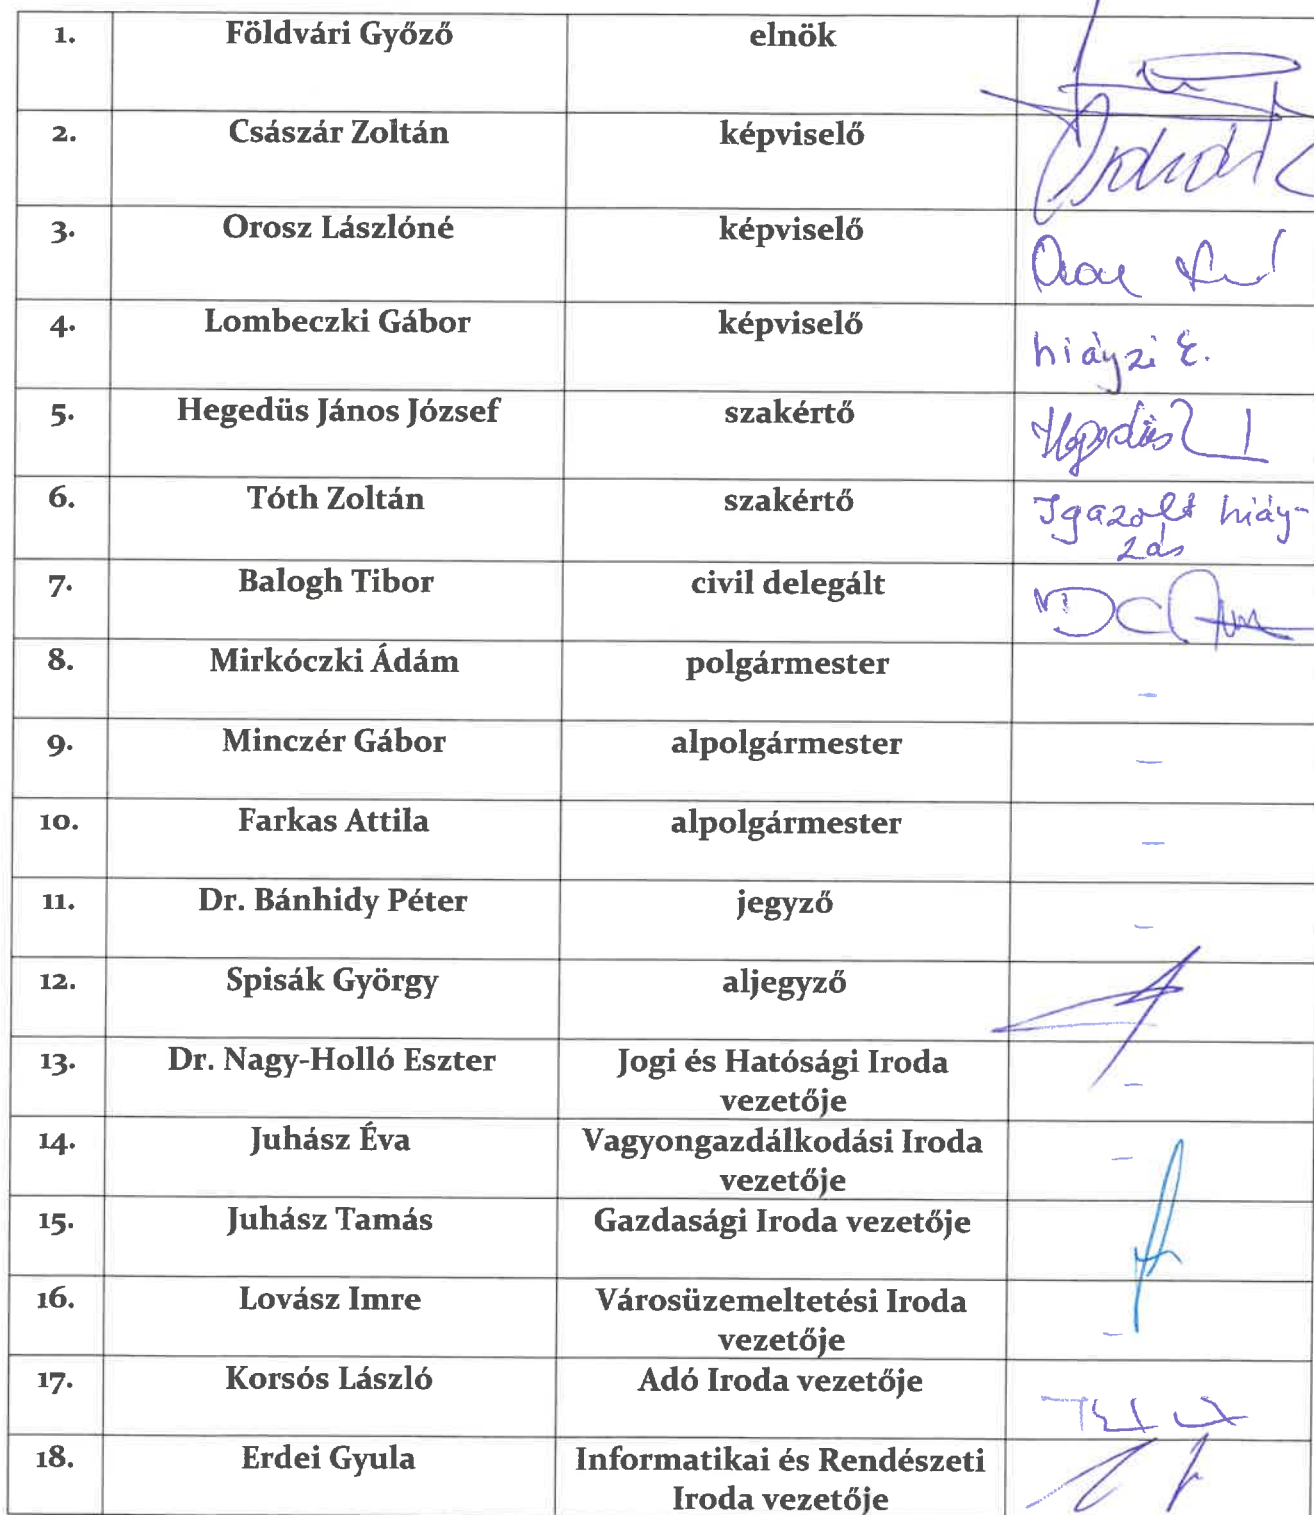 1. Földvári Győző elnök
2. Császár Zoltán képviselő
3. Orosz Lászlóné képviselő
4. Lombeczki Gábor képviselő hiányzi E.
5. Hegedüs János József szakértő Hegedüs
6. Tóth Zoltán szakértő Igazolt hiány-
zás
7. Balogh Tibor civil delegált
8. Mirkóczki Ádám polgármester -
9. Minczér Gábor alpolgármester -
10. Farkas Attila alpolgármester -
11. Dr. Bánhidy Péter jegyző -
12. Spisák György aljegyző
13. Dr. Nagy-Holló Eszter Jogi és Hatósági Iroda -
vezetője
14. Juhász Éva Vagyongazdálkodási Iroda -
vezetője
15. Juhász Tamás Gazdasági Iroda vezetője
16. Lovász Imre Városüzemeltetési Iroda -
vezetője
17. Korsós László Adó Iroda vezetője
18. Erdei Gyula Informatikai és Rendészeti
Iroda vezetője